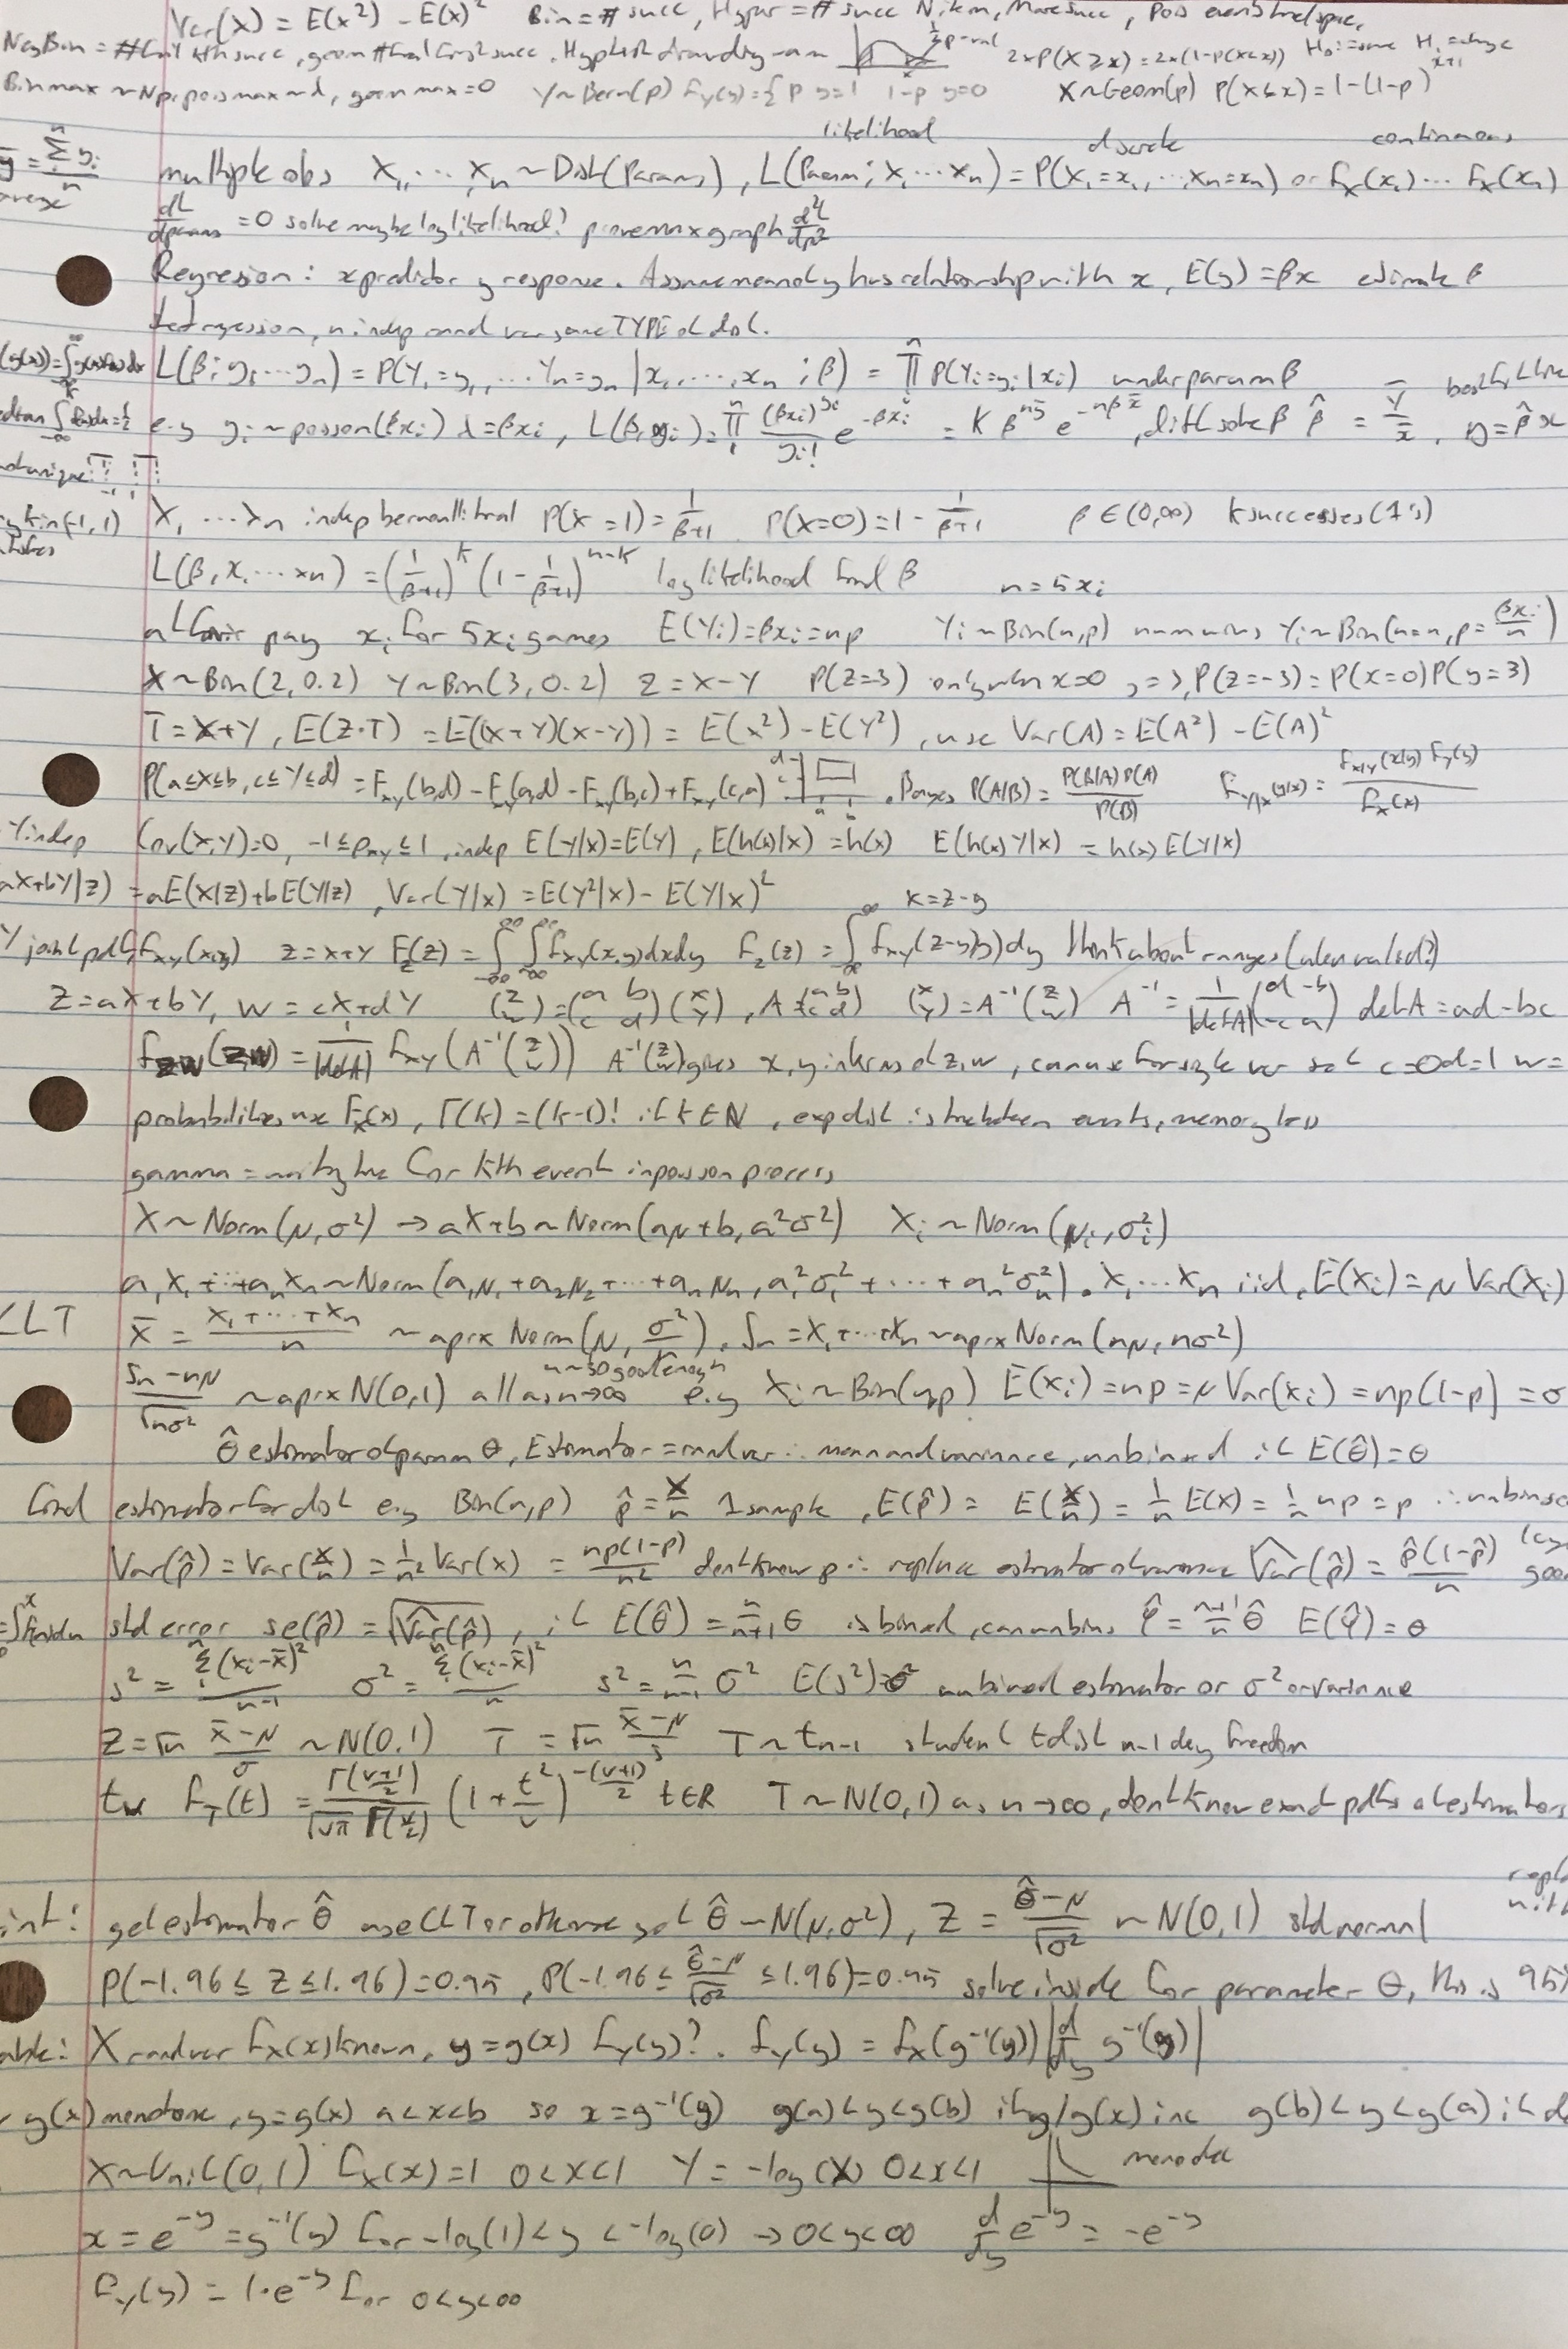 Var(X) = E(X²) - E(X)² Bin = # succ, Hyper = # succ N items, M are succ, Pois events time/space,
NegBin = #fail kth succ, geom #fail first succ. Hyp test draw diag 1/2 p-val 2×P(X≥x) = 2×(1-P(X<x)) H₀:=same H₁=change
Bin max ~Np, pois max ~λ, geom max=0 Y~Bern(p) f_Y(y)={p y=1 1-p y=0 X~Geom(p) P(X≤x)=1-(1-p)^(x+1)
likelihood discrete continuous
multiple obs X₁,...,Xₙ ~ Dist(Params), L(Param; X₁...Xₙ) = P(X₁=x₁,...,Xₙ=xₙ) or f_X(x₁)...f_X(xₙ)
ȳ = Σ yᵢ / n
dL/dparams = 0 solve maybe log likelihood? prove max graph d²L/dp²
Regresion: x predictor y response. Assume mean of y has relationship with x, E(y)=βx estimate β
n indep rand var same TYPE of dist.
L(β; y₁...yₙ) = P(Y₁=y₁,...Yₙ=yₙ | x₁,...,xₙ ; β) = Π P(Yᵢ=yᵢ|xᵢ) under param β best fit line
e.g yᵢ ~ poisson(βxᵢ) λ=βxᵢ, L(β, yᵢ) = Π (βxᵢ)^yᵢ / yᵢ! e^(-βxᵢ) = K β^(nȳ) e^(-nβx̄), diff solve β β̂ = Ȳ/x̄, y=β̂x
X₁...Xₙ indep bernoulli trial P(X=1) = 1/(β+1) P(X=0) = 1 - 1/(β+1) β∈(0,∞) k successes (1's)
L(β, x₁...xₙ) = (1/(β+1))^k (1 - 1/(β+1))^(n-k) log likelihood find β n=5xᵢ
pay xᵢ for 5xᵢ games E(Yᵢ)=βxᵢ=np Yᵢ~Bin(n,p) num wins Yᵢ~Bin(n=n, p=βxᵢ/n)
X~Bin(2,0.2) Y~Bin(3,0.2) Z=X-Y P(Z=3) only when x=0 y=3, P(Z=-3) = P(x=0)P(y=3)
T=X+Y, E(Z·T) = E((X+Y)(X-Y)) = E(X²) - E(Y²), use Var(A) = E(A²) - E(A)²
P(a≤X≤b, c≤Y≤d) = F_xy(b,d) - F_xy(a,d) - F_xy(b,c) + F_xy(c,a) d c a b . Bayes P(A|B) = P(B|A)P(A) / P(B) f_Y|X(y|x) = f_X|Y(x|y) f_Y(y) / f_X(x)
Y indep Cov(X,Y)=0, -1≤ρ_xy≤1, indep E(Y|X)=E(Y), E(h(x)|x)=h(x) E(h(x)Y|x) = h(x)E(Y|x)
aX+bY|Z) = aE(X|Z)+bE(Y|Z), Var(Y|X) = E(Y²|X) - E(Y|X)² x=z-y
Y joint pdf f_XY(x,y) z=x+y F_Z(z) = ∫∫ f_XY(x,y)dxdy f_Z(z) = ∫ f_XY(z-y,y)dy think about ranges (when valid?)
Z=aX+bY, W=cX+dY (z w) = (a b c d)(x y), A=(a b c d) (x y)=A⁻¹(z w) A⁻¹ = 1/|detA| (d -b -c a) detA = ad-bc
f_ZW(z,w) = 1/|detA| f_XY(A⁻¹(z w)) A⁻¹(z w) gives x,y in terms of z,w, can use for single var set c=0 d=1 w=
probabilities use F_X(x), Γ(k) = (k-1)! if k∈N, exp dist is time between events, memoryless
gamma = waiting time for kth event in poisson process
X~Norm(μ,σ²) → aX+b~Norm(aμ+b, a²σ²) Xᵢ~Norm(μᵢ,σᵢ²)
a₁X₁+...+aₙXₙ ~Norm(a₁μ₁+a₂μ₂+...+aₙμₙ, a₁²σ₁²+...+aₙ²σₙ²). X₁...Xₙ iid, E(Xᵢ)=μ Var(Xᵢ)
CLT X̄ = X₁+...+Xₙ / n ~aprx Norm(μ, σ²/n), Sₙ = X₁+...+Xₙ ~aprx Norm(nμ, nσ²)
n~30 good enough
Sₙ-nμ / √nσ² ~aprx N(0,1) all as n→∞ e.g Xᵢ~Bin(n,p) E(Xᵢ)=np=μ Var(Xᵢ)=np(1-p)=σ
θ̂ estimator of param θ, Estimator = rand var ∴ mean and variance, unbiased if E(θ̂)=θ
find estimator for dist e.g Bin(n,p) p̂ = X/n 1 sample, E(p̂) = E(X/n) = 1/n E(X) = 1/n np = p ∴ unbiase
Var(p̂) = Var(X/n) = 1/n² Var(X) = np(1-p)/n² dont know p ∴ replace estimator of variance Var̂(p̂) = p̂(1-p̂)/n
std error se(p̂) = √Var̂(p̂), if E(θ̂) = n/(n+1) θ is biased, can unbias φ̂ = (n+1)/n θ̂ E(φ̂)=θ
s² = Σ(xᵢ-x̄)² / n-1 σ² = Σ(xᵢ-x̄)² / n s² = n/(n-1) σ² E(s²)=σ² unbiased estimator or σ² or variance
Z = √n (X̄-μ)/σ ~ N(0,1) T = √n (X̄-μ)/s T~tₙ₋₁ student t dist n-1 deg freedom
tᵥ f_T(t) = Γ((v+1)/2) / √vπ Γ(v/2) (1 + t²/v)^(-(v+1)/2) t∈R T~N(0,1) as n→∞, dont know exact pdfs of estimators
int: get estimator θ̂ use CLT or otherwise get θ̂~N(μ,σ²), Z = (θ̂-μ)/√σ² ~ N(0,1) std normal
P(-1.96 ≤ Z ≤ 1.96) = 0.95, P(-1.96 ≤ (θ̂-μ)/√σ² ≤ 1.96) = 0.95 solve inside for parameter θ, this is 95%
able: X rand var f_X(x) known, y=g(x) f_Y(y)?. f_Y(y) = f_X(g⁻¹(y)) |d/dy g⁻¹(y)|
g(x) monotone, y=g(x) a<x<b so x=g⁻¹(y) g(a)<y<g(b) if y/g(x) inc g(b)<y<g(a) if d
X~Unif(0,1) f_X(x)=1 0<x<1 Y = -log(X) 0<x<1 mono dec
x = e^-y = g⁻¹(y) for -log(1)<y<-log(0) → 0<y<∞ d/dy e^-y = -e^-y
f_Y(y) = 1·e^-y for 0<y<∞